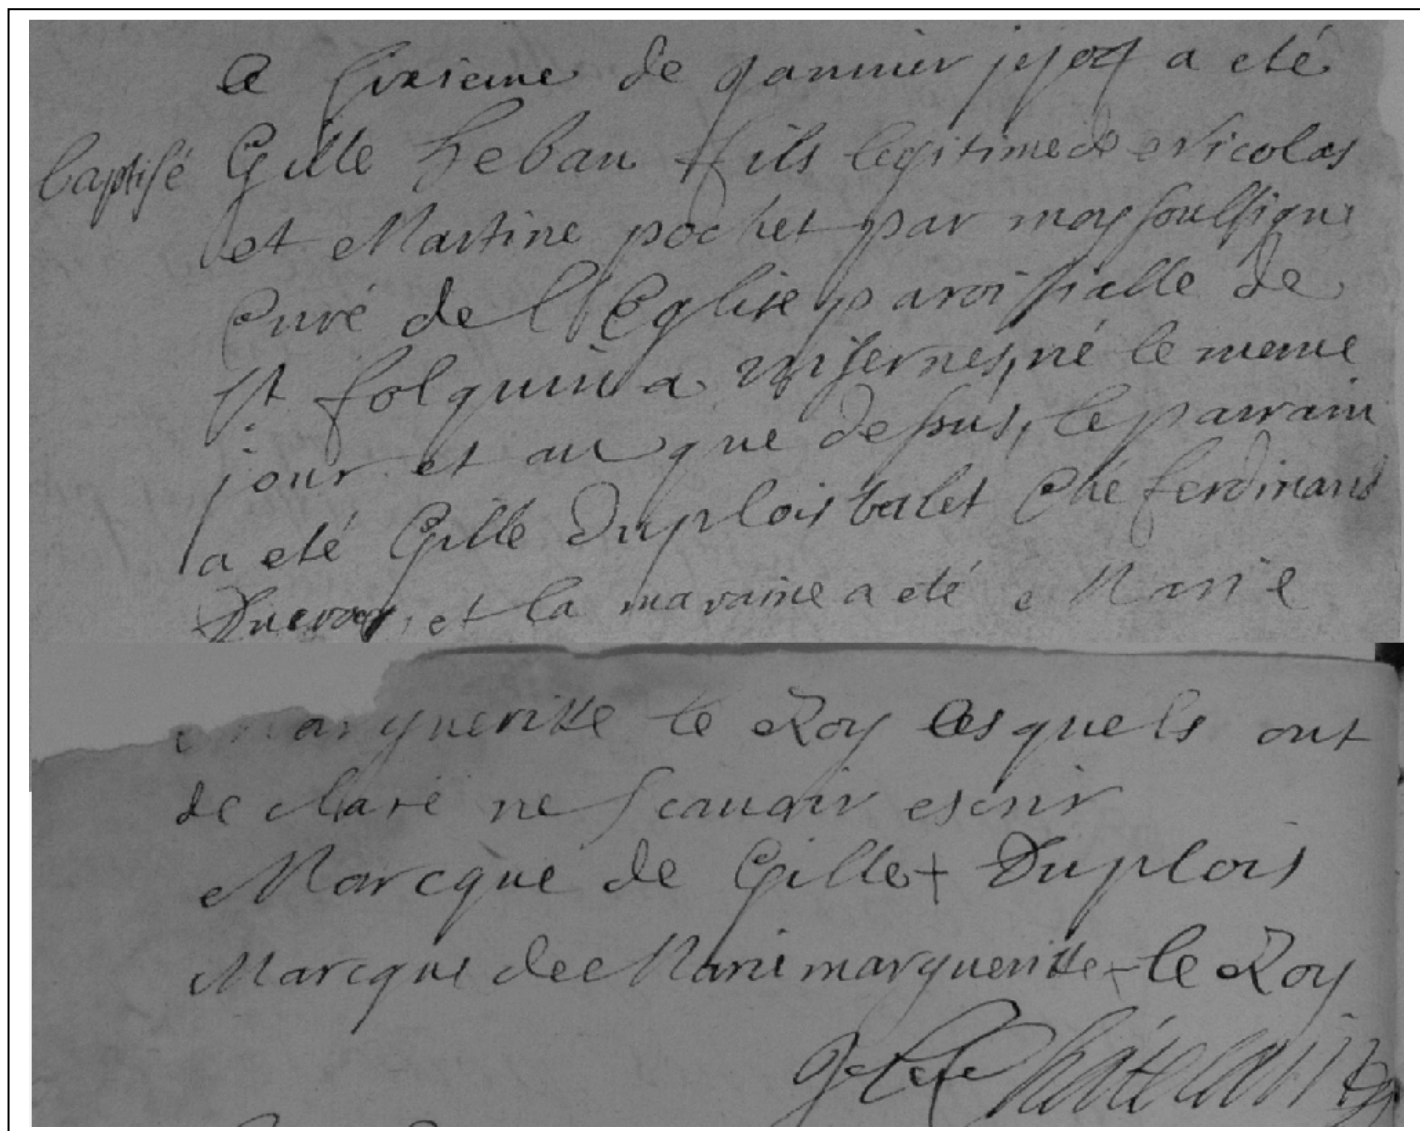 Le sixieme de Janvier a eté
baptisé Gille heban fils legitime de Nicolas
et Martine pochet par moy soussigne
Curé de l'Eglise paroissialle de
st folquin a Wisernes, né le meme
jour et an que dessus, le parrain
a eté Gille Duplois valet Ché ferdinand
et la maraine a eté Marie
margueritte le Roy lesquels ont
declaré ne scauoir escrir
Marcque de Gille + Duplois
Marcque de Marie margueritte + le Roy